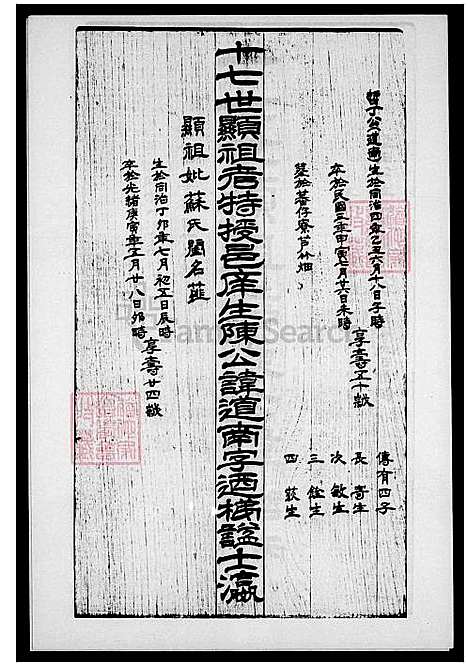 公道南生於同治四年乙丑六月十八日子時
卒於民國三年甲寅七月廿六日未時
享壽五十歲
葬於蕃仔寮芦竹畑
傳有四子
長 寄生
次 敏生
三 銓生
四 茲生
十七世顯祖考特授邑庠生陳公諱道南字迺梯謚士瀛
顯祖妣蘇氏閨名蓮
生於同治丁卯年七月初五日辰時
卒於光緒庚寅年五月廿八日卯時
享壽廿四歲
FamilySearch